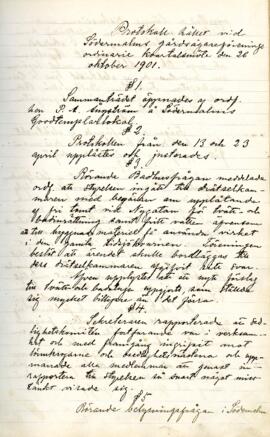 Protokoll hållet vid
Södermalms gårdsägareförenings
ordinarie kvartalsmöte den 26
oktober 1901.
§ 1.
Sammanträdet öppnades af ordf.
herr P. A. i Södermalms
Goodtemplarlokal.
§ 2.
Protokollen från den 13 och 23
april upplästes och justerades.
§ 3.
Rörande Badhusfrågan meddelade
ordf. att styrelsen ingått till drätselkam-
maren med begäran om upplåtande
af fri tomt vid Nygatan för tvätt och
badinrättning samt
byggnadsmateriel få använda virket
i den gamla Föreningen
beslöt att ärendet skulle bordläggas till
dess drätselkammaren afgifvit sitt svar.
Äfven upplystes att en nytt förslag
till tvätt och badstuga uppgjorts, som ställer
sig mycket billigare än det förra.
§ 4.
Sekreteraren rapporterade att Sed-
lighetskomitén fortfarande var i verksam-
het och med framgång ingripit mot
lönnkrögerier och och upp-
manade alla medlemmar att genast in-
rapportera till styrelsen så snart något miss-
tänkt visade sig.
§ 5.
Rörande belysningsfrågan i Södermalm